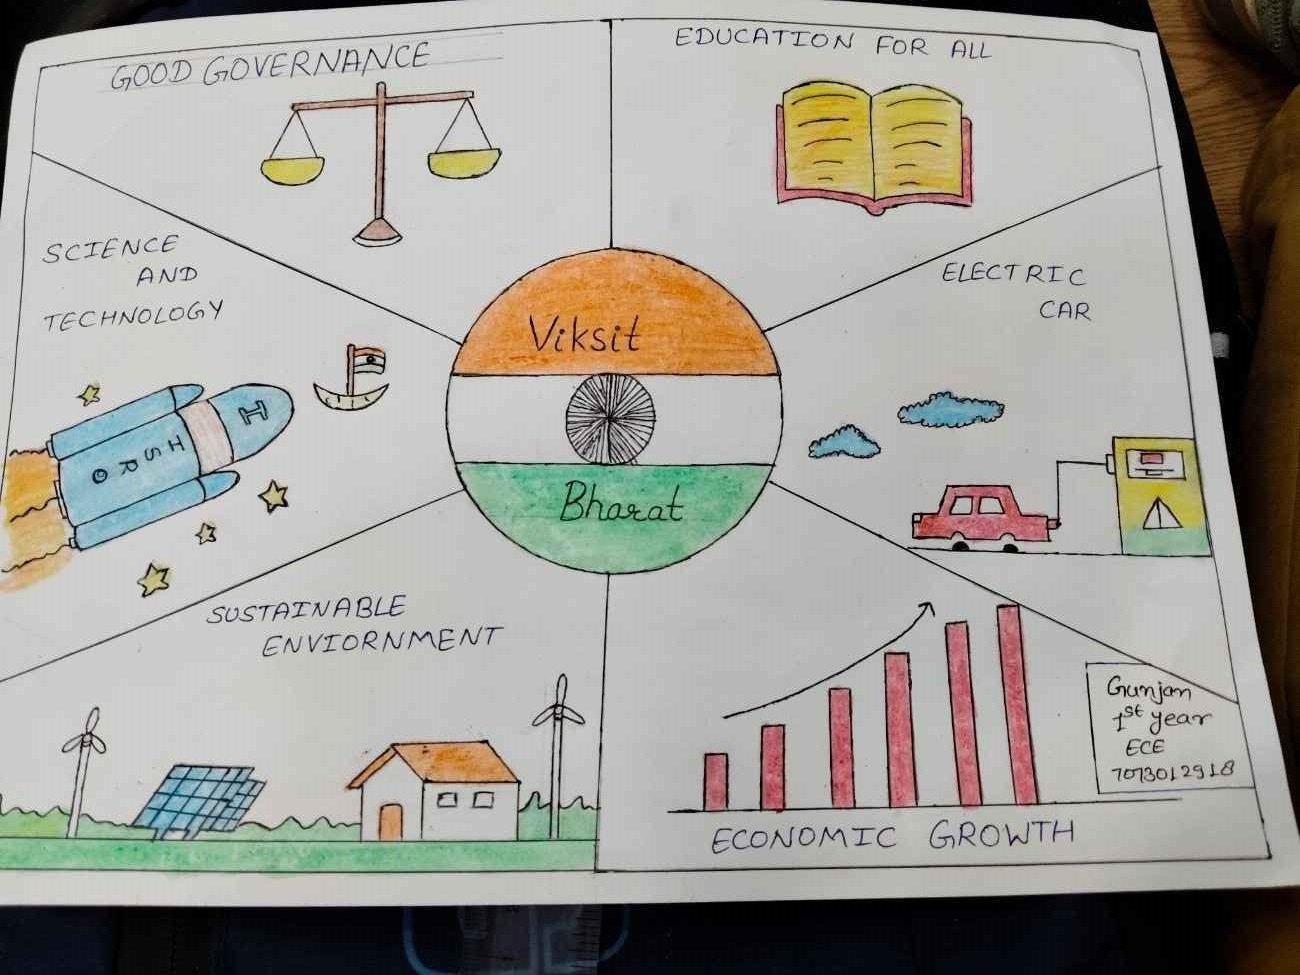 GOOD GOVERNANCE
EDUCATION FOR ALL
SCIENCE
AND
TECHNOLOGY
ELECTRIC
CAR
Viksit
Bharat
I
ISRO
SUSTAINABLE
ENVIORNMENT
ECONOMIC GROWTH
Gunjan
1st year
ECE
7073012918